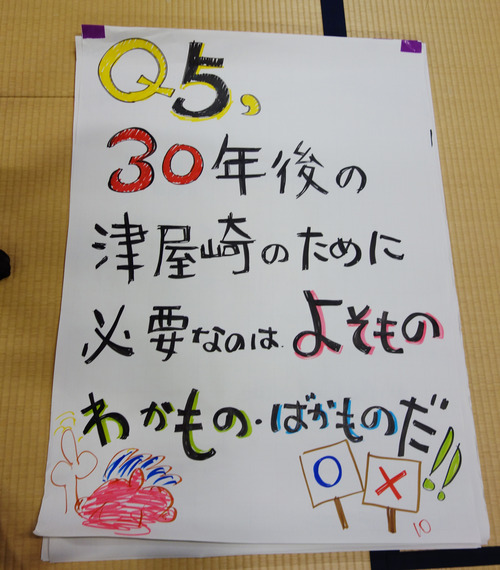 Q5,
30年後の
津屋崎のために
必要なのは よそもの
わかもの・ばかものだ!!
○ ×
10